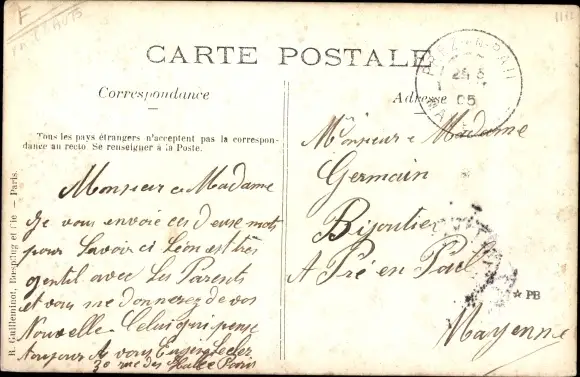 F
CARTE POSTALE
Correspondance
Adresse
Tous les pays étrangers n'acceptent pas la correspon-
dance au recto. Se renseigner à la Poste.
Monsieur e Madame
Je vous envoie ces deuse mots
pour Savoir ci Léon est très
gentil avec Les Parents
et vous me donnerez de vos
Nouvelle Celui qui pense
Toujours A vous
30 rue des Paris
Monsieur e Madame
Germain
Bijoutier
A Pré en Pail
Mayenne
PRÉ-EN-PAIL
05
★ PB
B. Guilleminot, Bœspflug et Cie — Paris.